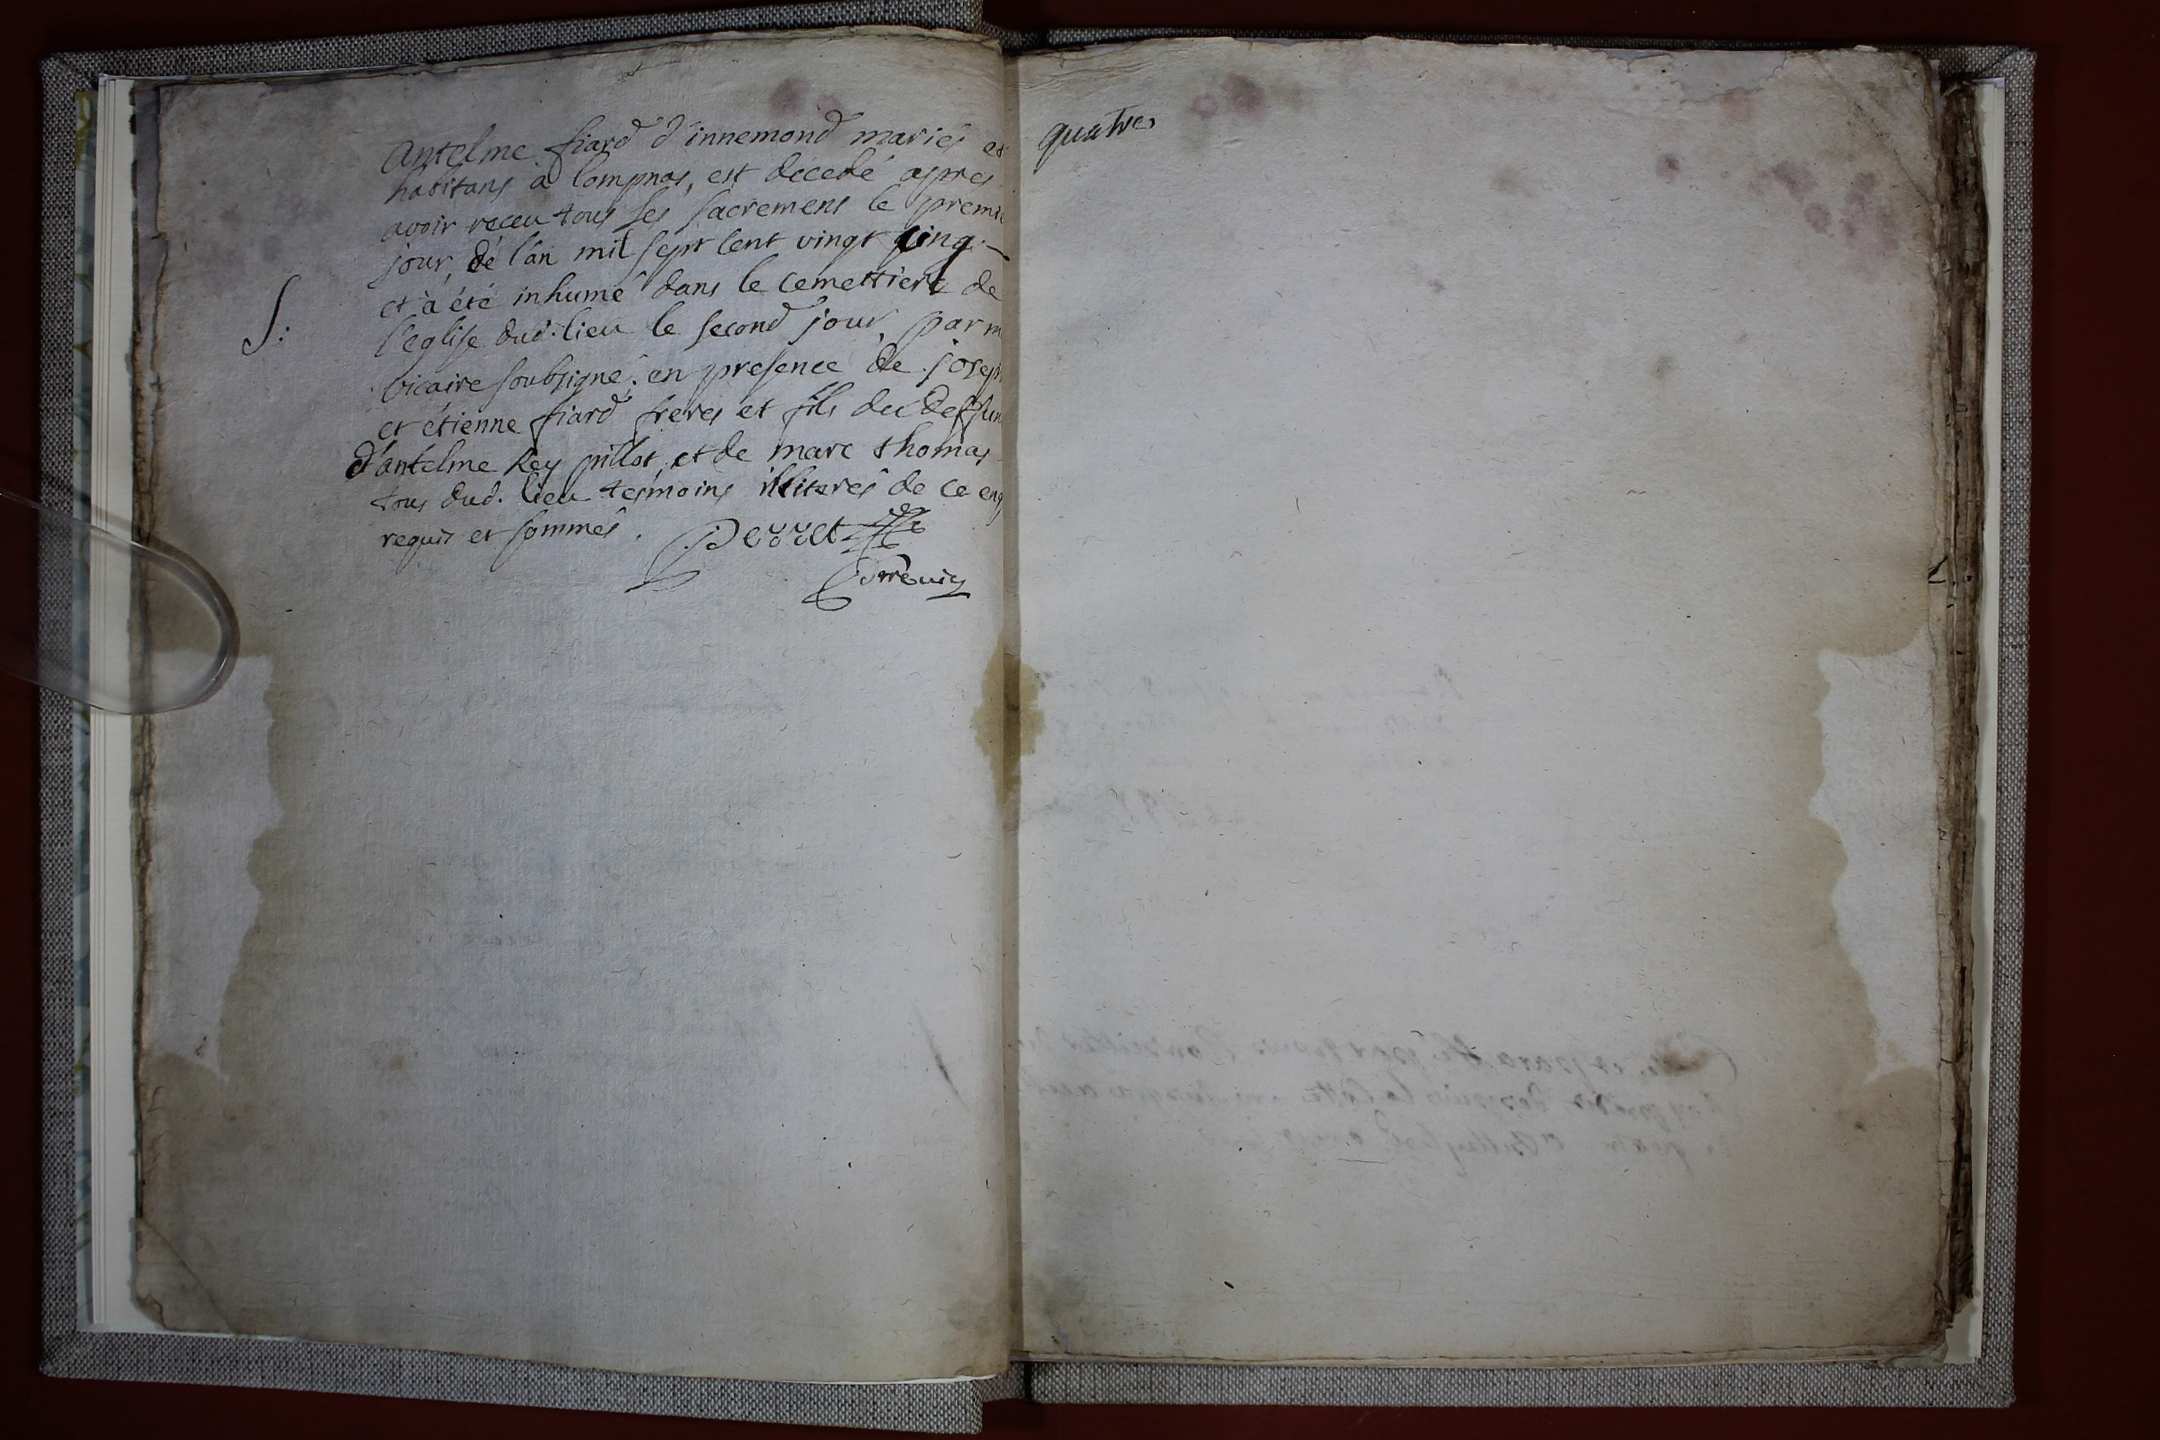 Antelme fiard d'innemond mariés et
habitans a lompnas, est décedé apres
avoir receu tous ses sacremens le premi
jour, de l'an mil sept cent vingt cinq.
et à été inhumé dans le cemettiere de
S:
l'eglise dud. lieu le second jour, par m
vicaire soubsigné; en presence de joseph
et étienne fiard freres et fils du deffun
d'antelme Rey pillot, et de marc thomas
tous dud. lieu tesmoins illiterés de ce enq
requis et sommés. Perret
quatre